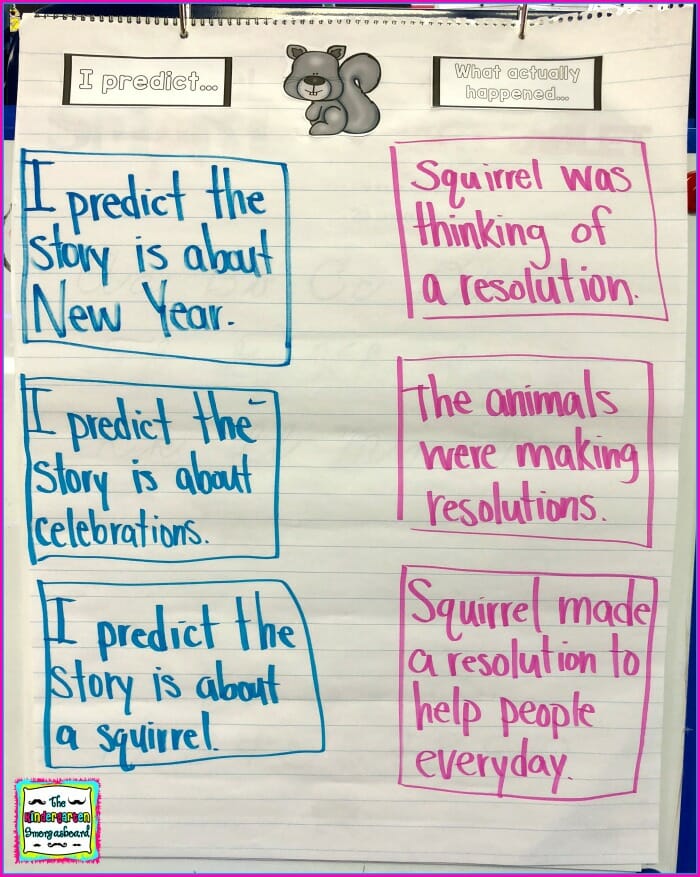 I predict...
What actually
happened...
I predict the
story is about
New Year.
Squirrel was
thinking of
a resolution.
I predict the
story is about
celebrations.
The animals
were making
resolutions.
I predict the
story is about
a squirrel.
Squirrel made
a resolution to
help people
everyday.
The
Kindergarten
Smorgasboard